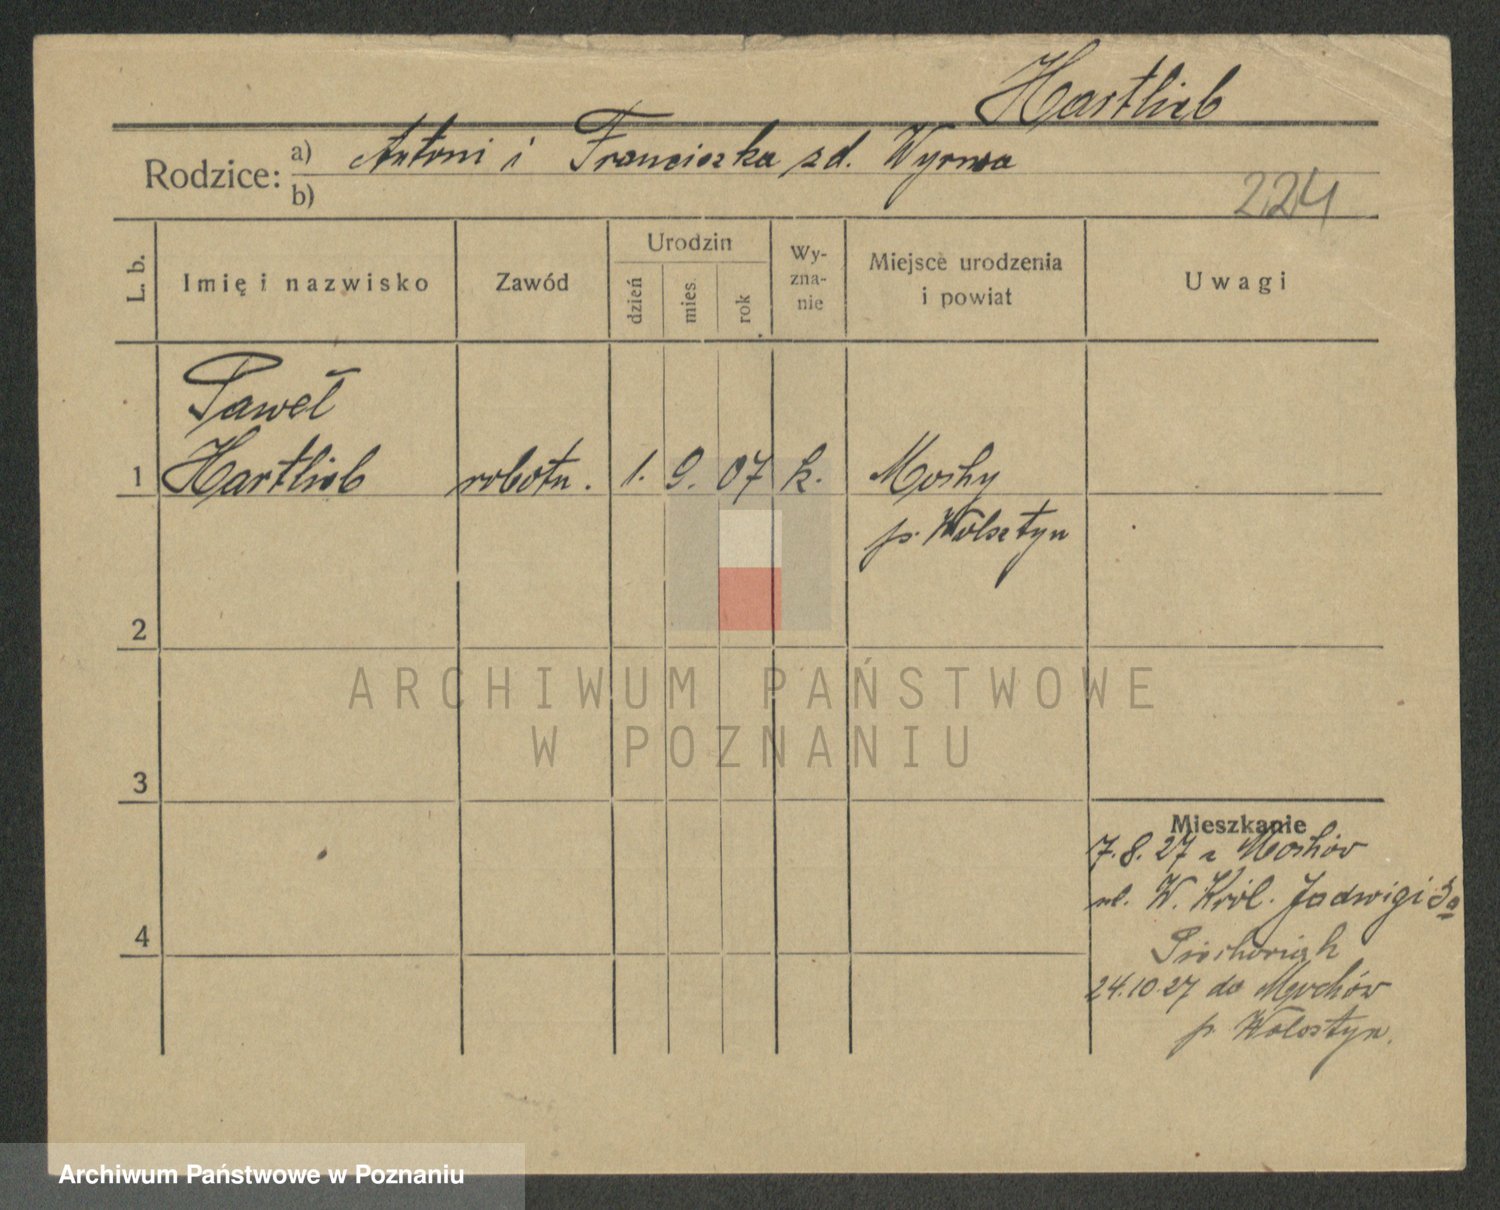 Hartlieb
Rodzice:
a) Antoni i Franciszka zd. Wyrwa
b)
224
L. b.
Imię i nazwisko
Zawód
Urodzin
dzień
mies.
rok
Wy-
zna-
nie
Miejsce urodzenia
i powiat
Uwagi
Paweł
1 Hartlieb robotn. 1. 9. 07 k. Mochy
p. Wolsztyn
2
ARCHIWUM PAŃSTWOWE
W POZNANIU
3
Mieszkanie
7.8.27 z Mochów
ul. W. Król. Jadwigi 3a
4
24.10.27 do Mochów
p. Wolsztyn.
Archiwum Państwowe w Poznaniu